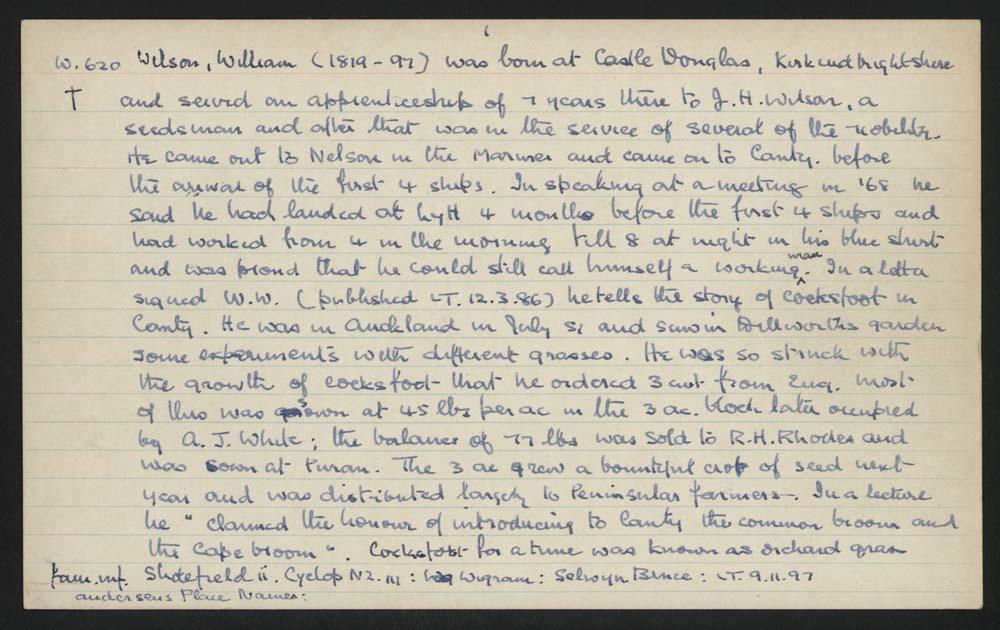 W.620 Wilson, William (1819-97) was born at Castle Douglas, Kirkcudbrightshire
† and served an apprenticeship of 7 years there to J.H. Wilson, a
seedsman and after that was in the service of several of the nobility.
He came out to Nelson in the Mariner and came on to Canty. before
the arrival of the first 4 ships. In speaking at a meeting in '68 he
said he had landed at Lytt 4 months before the first 4 ships and
had worked from 4 in the morning till 8 at night in his blue shirt
and was proud that he could still call himself a working man. In a letter
signed W.W. (published LT. 12.3.86) he tells the story of cocksfoot in
Canty. He was in Auckland in July 51 and saw in Dillworths garden
some experiments with different grasses. He was so struck with
the growth of cocksfoot that he ordered 3 cwt from Eng. Most
of this was sown at 45 lbs per ac in the 3 ac. block later occupied
by A.J. White; the balance of 77 lbs was sold to R.H. Rhodes and
was sown at Purau. The 3 ac grew a bountiful crop of seed next
year and was distibuted largely to Peninsular farmers. In a lecture
he "claimed the honour of introducing to Canty the common broom and
the Cape broom". Cocksfoot for a time was known as orchard grass
fam. inf. Sholefield ii. Cyclop NZ. III: Wigram: Selwyn Bruce: LT. 9.11.97
Andersens Place Names: